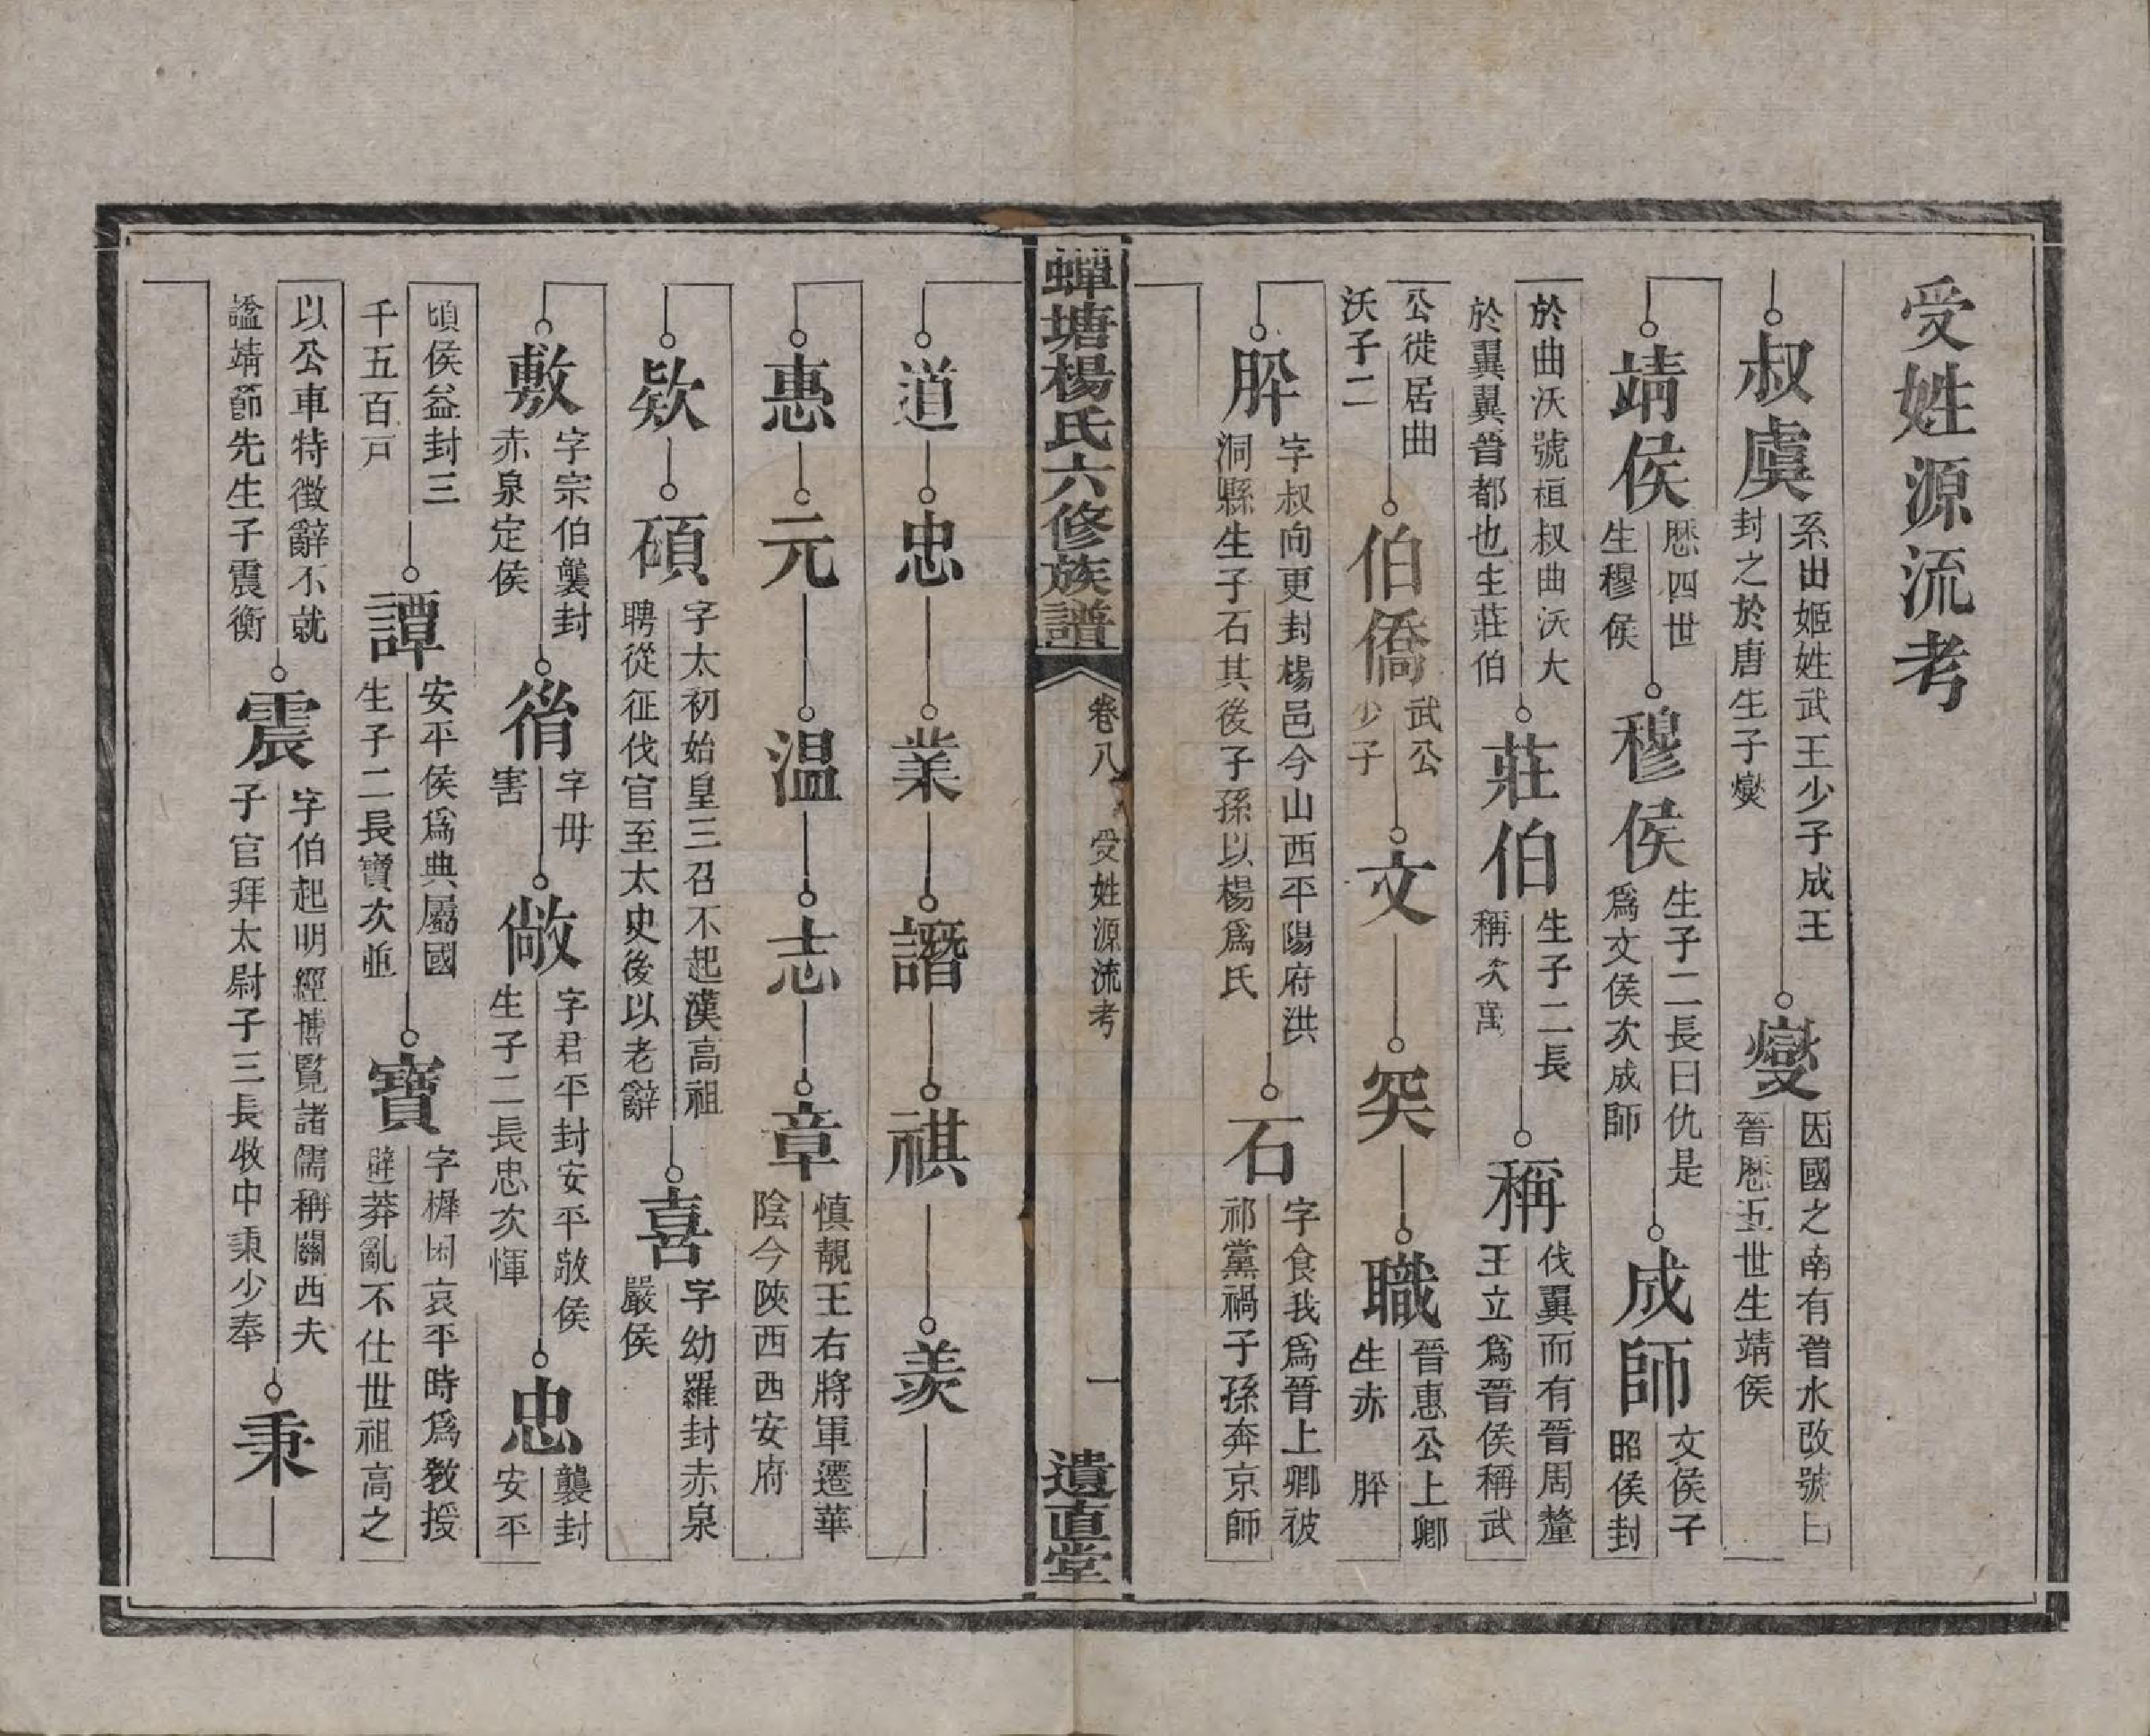 受姓源流考
叔虞
系出姬姓武王少子成王
封之於唐生子燮
燮
因國之南有晉水改號曰
晉歷五世生靖侯
靖侯
歷四世
生穆侯
穆侯
生子二長曰仇是
爲文侯次成師
成師
文侯子
昭侯封
於曲沃號桓叔曲沃大
於翼翼晉都也生莊伯
莊伯
生子二長
稱次萬
稱
伐翼而有晉周釐
王立爲晉侯稱武
公徙居曲
沃子二
伯僑
武公
少子
文
突
職
晉惠公上卿
生赤　肸
肸
字叔向更封楊邑今山西平陽府洪
洞縣生子石其後子孫以楊爲氏
石
字食我爲晉上卿彼
祁黨禍子孫奔京師
蟬塘楊氏六修族譜
卷八
受姓源流考
一
遺直堂
道
忠
業
譖
祺
羨
惠
元
温
志
章
慎靚王右將軍遷華
陰今陝西西安府
欵
碩
字太初始皇三召不起漢高祖
聘從征伐官至太史後以老辭
喜
字幼羅封赤泉
嚴侯
敷
字宗伯襲封
赤泉定侯
㣲
字毋
害
敞
字君平封安平敬侯
生子二長忠次惲
忠
襲封
安平
頃侯益封三
千五百戸
譚
安平侯爲典屬國
生子二長寶次並
寶
字樨因哀平時爲教授
避莽亂不仕世祖高之
以公車特徵辭不就
謚靖節先生子震衡
震
字伯起明經博覧諸儒稱關西夫
子官拜太尉子三長牧中秉少奉
秉